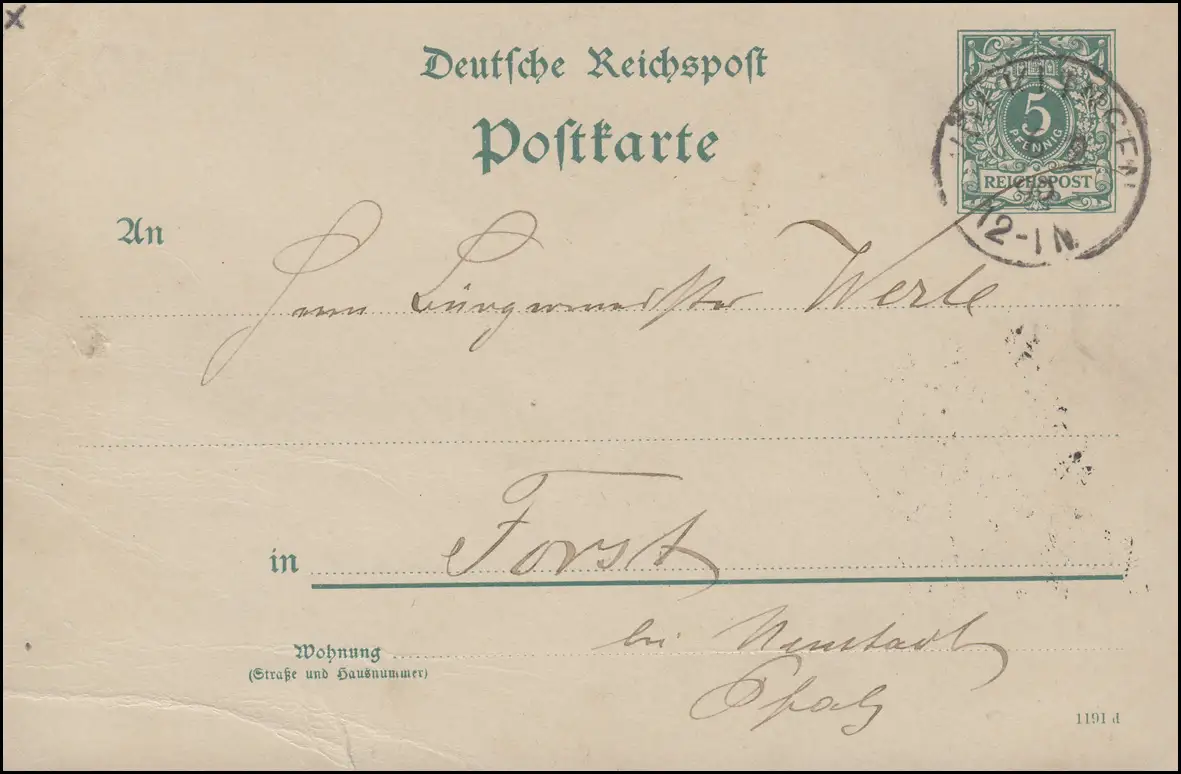 Deutsche Reichspost
Postkarte
5
PFENNIG
REICHSPOST
12-1N.
An
Herrn Bürgermeister Werle
in Forst
Wohnung bei Neustadt
(Straße und Hausnummer)
Pfalz
1191 d